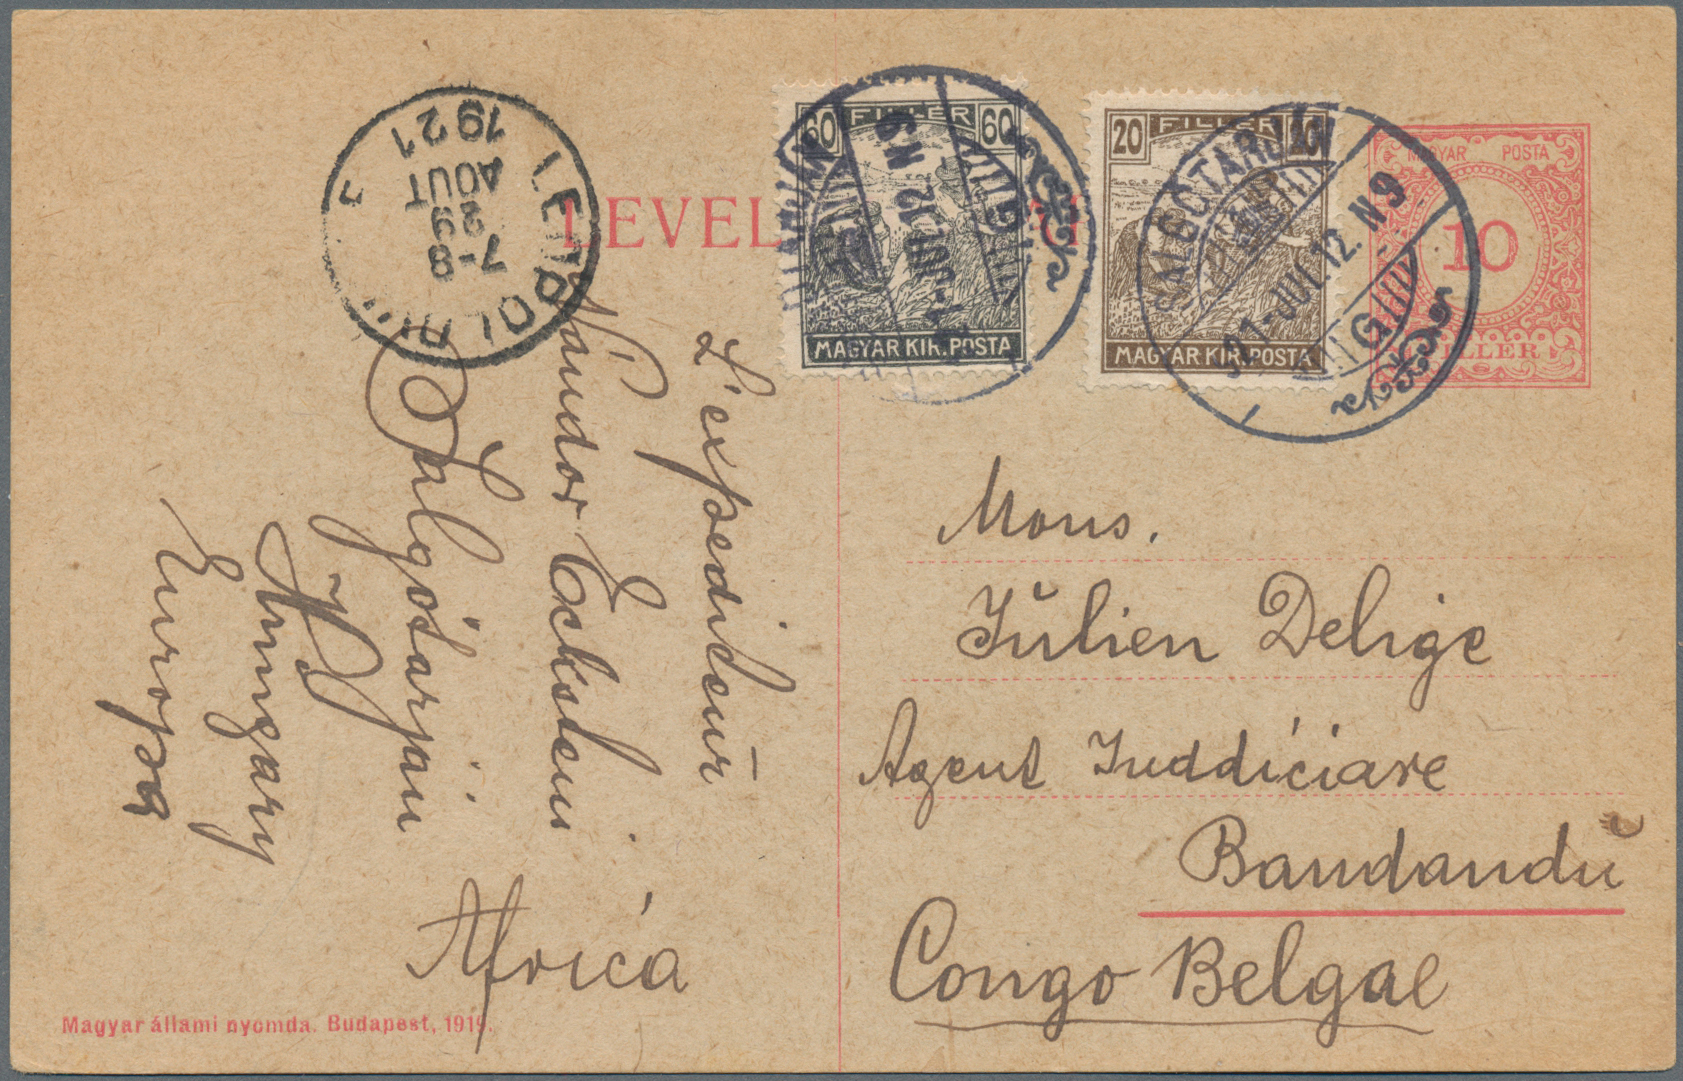 LEVEL
60 FILLÉR 60
MAGYAR KIR. POSTA
20 FILLÉR
MAGYAR KIR. POSTA
MAGYAR POSTA
10
FILLÉR
SALGÓTARJÁN
921 JUL 12. N9
921 JUL 12 N9
LEOPOLDVILLE
7-8
29
AOUT
1921
L'expediteur
Sándor Eckstein
Salgótarján
Hungary
Europa
Africa
Mons.
Jŭlien Delige
Agent Juddiciare
Bandandŭ
Congo Belgae
Magyar állami nyomda. Budapest, 1919.